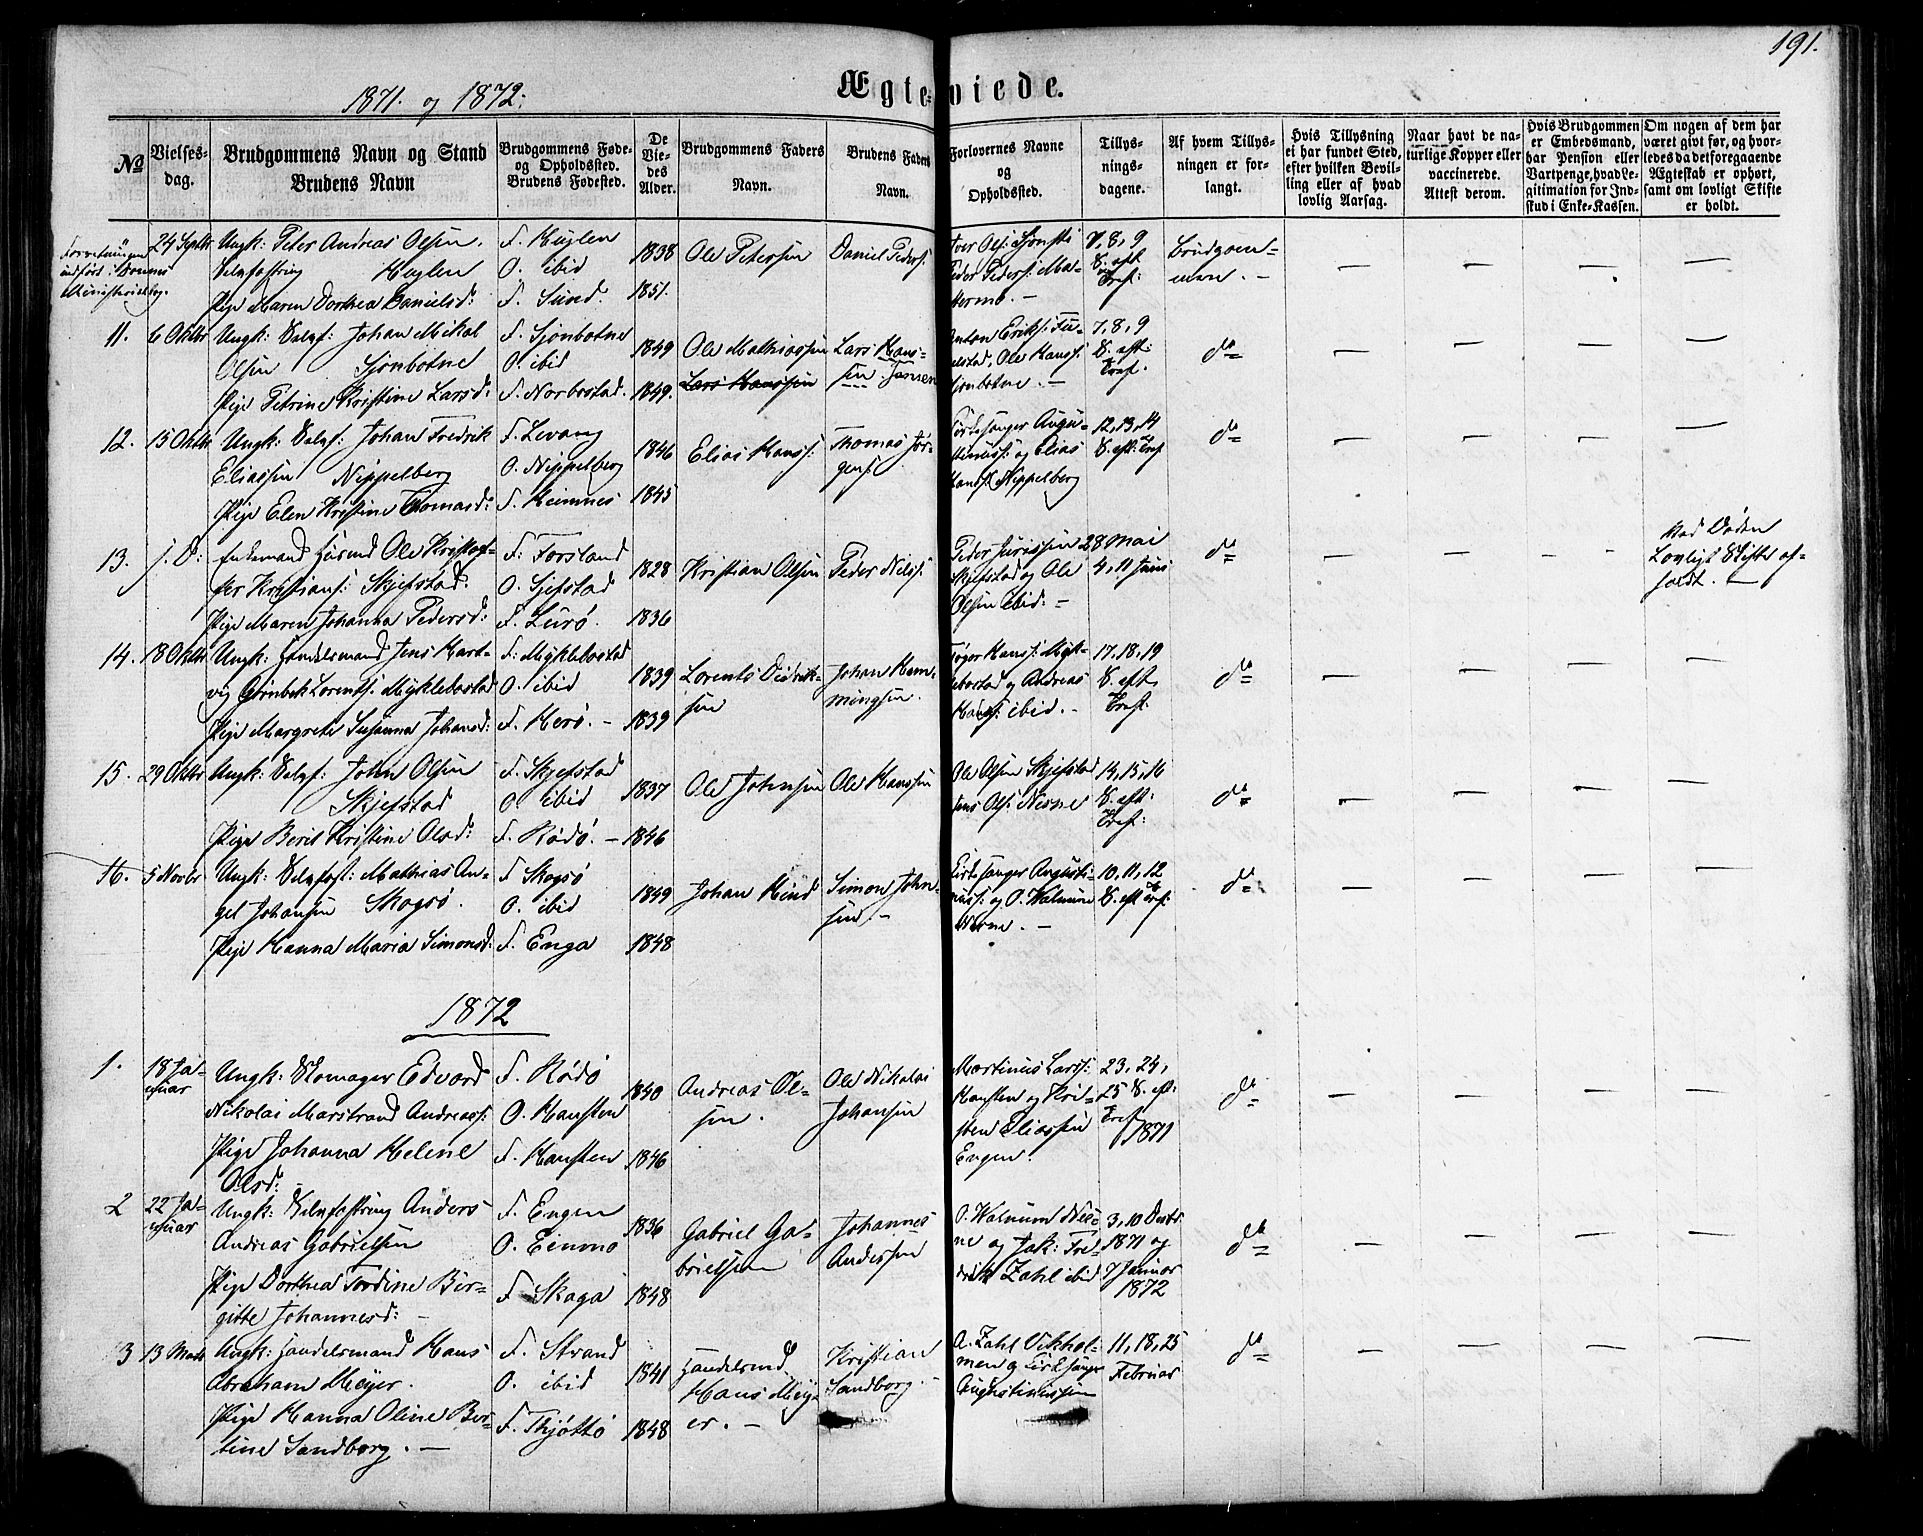 191.
1871. og 1872.
Ægteviede.
No
Vielses-
dag.
Brudgommens Navn og Stand
Brudens Navn
Brudgommens Føde-
og Opholdssted.
Brudens Fødested.
De
Vie-
des
Alder.
Brudgommens Faders
Navn.
Brudens Faders
Navn.
Forlovernes Navne
og
Opholdssted.
Tillys-
nings-
dagene.
Af hvem Tillys-
ningen er for-
langt.
Hvis Tillysning
ei har fundet Sted,
efter hvilken Bevil-
ling eller af hvad
lovlig Aarsag.
Naar havt de na-
turlige Kopper eller
vaccinerede.
Attest derom.
Hvis Brudgommen
er Embedsmand,
har Pension eller
Vartpenge, hvad Le-
gitimation for Ind-
skud i Enke-Kassen.
Om nogen af dem har
været givt før, og hvor-
ledes da det foregaaende
Ægteskab er ophørt,
samt om lovligt Skifte
er holdt.
Forretningen
indført i
Ministerialbog.
24 Septbr
Ungk: Peter Andreas Olsen,
Huglen
Pige Maren Dorthea Danielsd:
F. Huglen
O. ibid
F. Sund.
1838
1851.
Ole Petersen
Daniel Peders:
Peder Peders:
7, 8, 9
S. eft
Tref:
Brudgom-
men. —
11.
6 Oktbr
Ungk: Selvf: Johan Mikal
Olsen Sjonbotne
Pige Petrine Kristine Larsd:
F. Sjonbotne
O. ibid
F. Norbostad.
1849
1849.
Ole Mathiassen
Lars Hanssen
Lars Hans-
sen
Anton Eriks:
Ole Hans:
Sjonbotne. —
7, 8, 9
S. eft:
Tref.
do
12.
15 Oktbr
Ungk: Selvf: Johan Fredrik
Eliassen Nippelberg
Pige Elen Kristine Thomasd:
F. Levang
O. Nippelberg
F. Hemnes
1846
1845
Elias Hans:
Thomas Jør-
gens:
Kirkesanger Augu-
stinus: og Elias
Hans: Nippelberg
12, 13, 14
S. eft: Tref
do
13.
s. D:
Enkemand Husmd Ole Kristof-
fer Kristians: Skjefstad:
Pige Maren Johanna Pedersd:
F: Forsland
O. Sjefstad
F. Lurö.
1828
1836
Kristian Olsen
Peder Niels:
Peder Jurissen
Skjefstad og Ole
Olsen ibid: —
28 Mai
4, 11 Juni
do
Ved Døden
Lovligt Skifte af-
holdt. —
14.
18 Oktbr
Ungk: Handelsmand Jens Hart-
vig Grönbek Lorents: Myklebostad
Pige Margrete Susanna Johansd:
F: Myklebostad
O. ibid
F. Herö. —
1839
1839
Lorents Didrik-
sen
Johan Hem-
mingsen.
Hans: Myk-
lebostad og Andreas
Hans: ibid. —
17, 18, 19
S. eft
Tref:
do
15.
29 Oktbr
Ungk: Selvf: John Olsen
Skjefstad
Pige Berit Kristine Olsd:
F. Skjefstad
O. ibid
F. Rödö. —
1837
1846
Ole Johnsen
Ole Hanssen
Ole Olsen Skjefstad
Jens Ols: Nesne
14, 15, 16
S. eft:
Tref:
do
16.
5 Novbr
Ungk: Selvfost: Mathias An-
gel Johansen Skogsö.
Pige Hanna Maria Simonsd:
F. Skogsö
O. ibid
F. Enga
1849
1848
Johan Hind
Simon John-
sen. —
Kirkesanger Augusti-
nuss: og O. Walnum
Nesne. —
10, 11, 12
S. eft Tref:
do
1872
1.
18 Ja-
nuar
Ungk: Skomager Edvard
Nikolai Marstrand Andreass:
Pige Johanna Helene
Olsd: —
F. Rödö
O. Hansten
F. Hansten
1840
1846
Andreas Ol-
sen.
Ole Nikolai
Johansen
Martinus Lars:
Hansten og Kri-
sten Eliassen
Engen.
23, 24,
25 S. eft:
Tref
1871
do
2
22 Ja-
nuar
Ungk: Selvfostring Anders
Andreas Gabrielsen
Pige Dorthea Tordine Bir-
gitte Johannesd: —
F. Engen
O. Einmo
F. Skaga
1836
1848
Gabriel Ga-
brielsen
Johannes
Anderssen
O. Walnum Nes-
ne og Jak: Fre-
drik Zahl ibid
3, 10 Decbr
1871 og
7 Januar
1872
do
3
13 Marts
Ungk: Handelsmand Hans
Abraham Meyer.
Pige Hanna Oline Ber-
tine Sandborg. —
F. Strand
O. ibid
F. Thjöttö
1841
1848
Handelsmd
Hans Mey-
er. —
Kristian
Sandborg. —
A. Zahl Vikhol-
men og Kirkesanger
Augustinussen
11, 18, 25
Februar
do